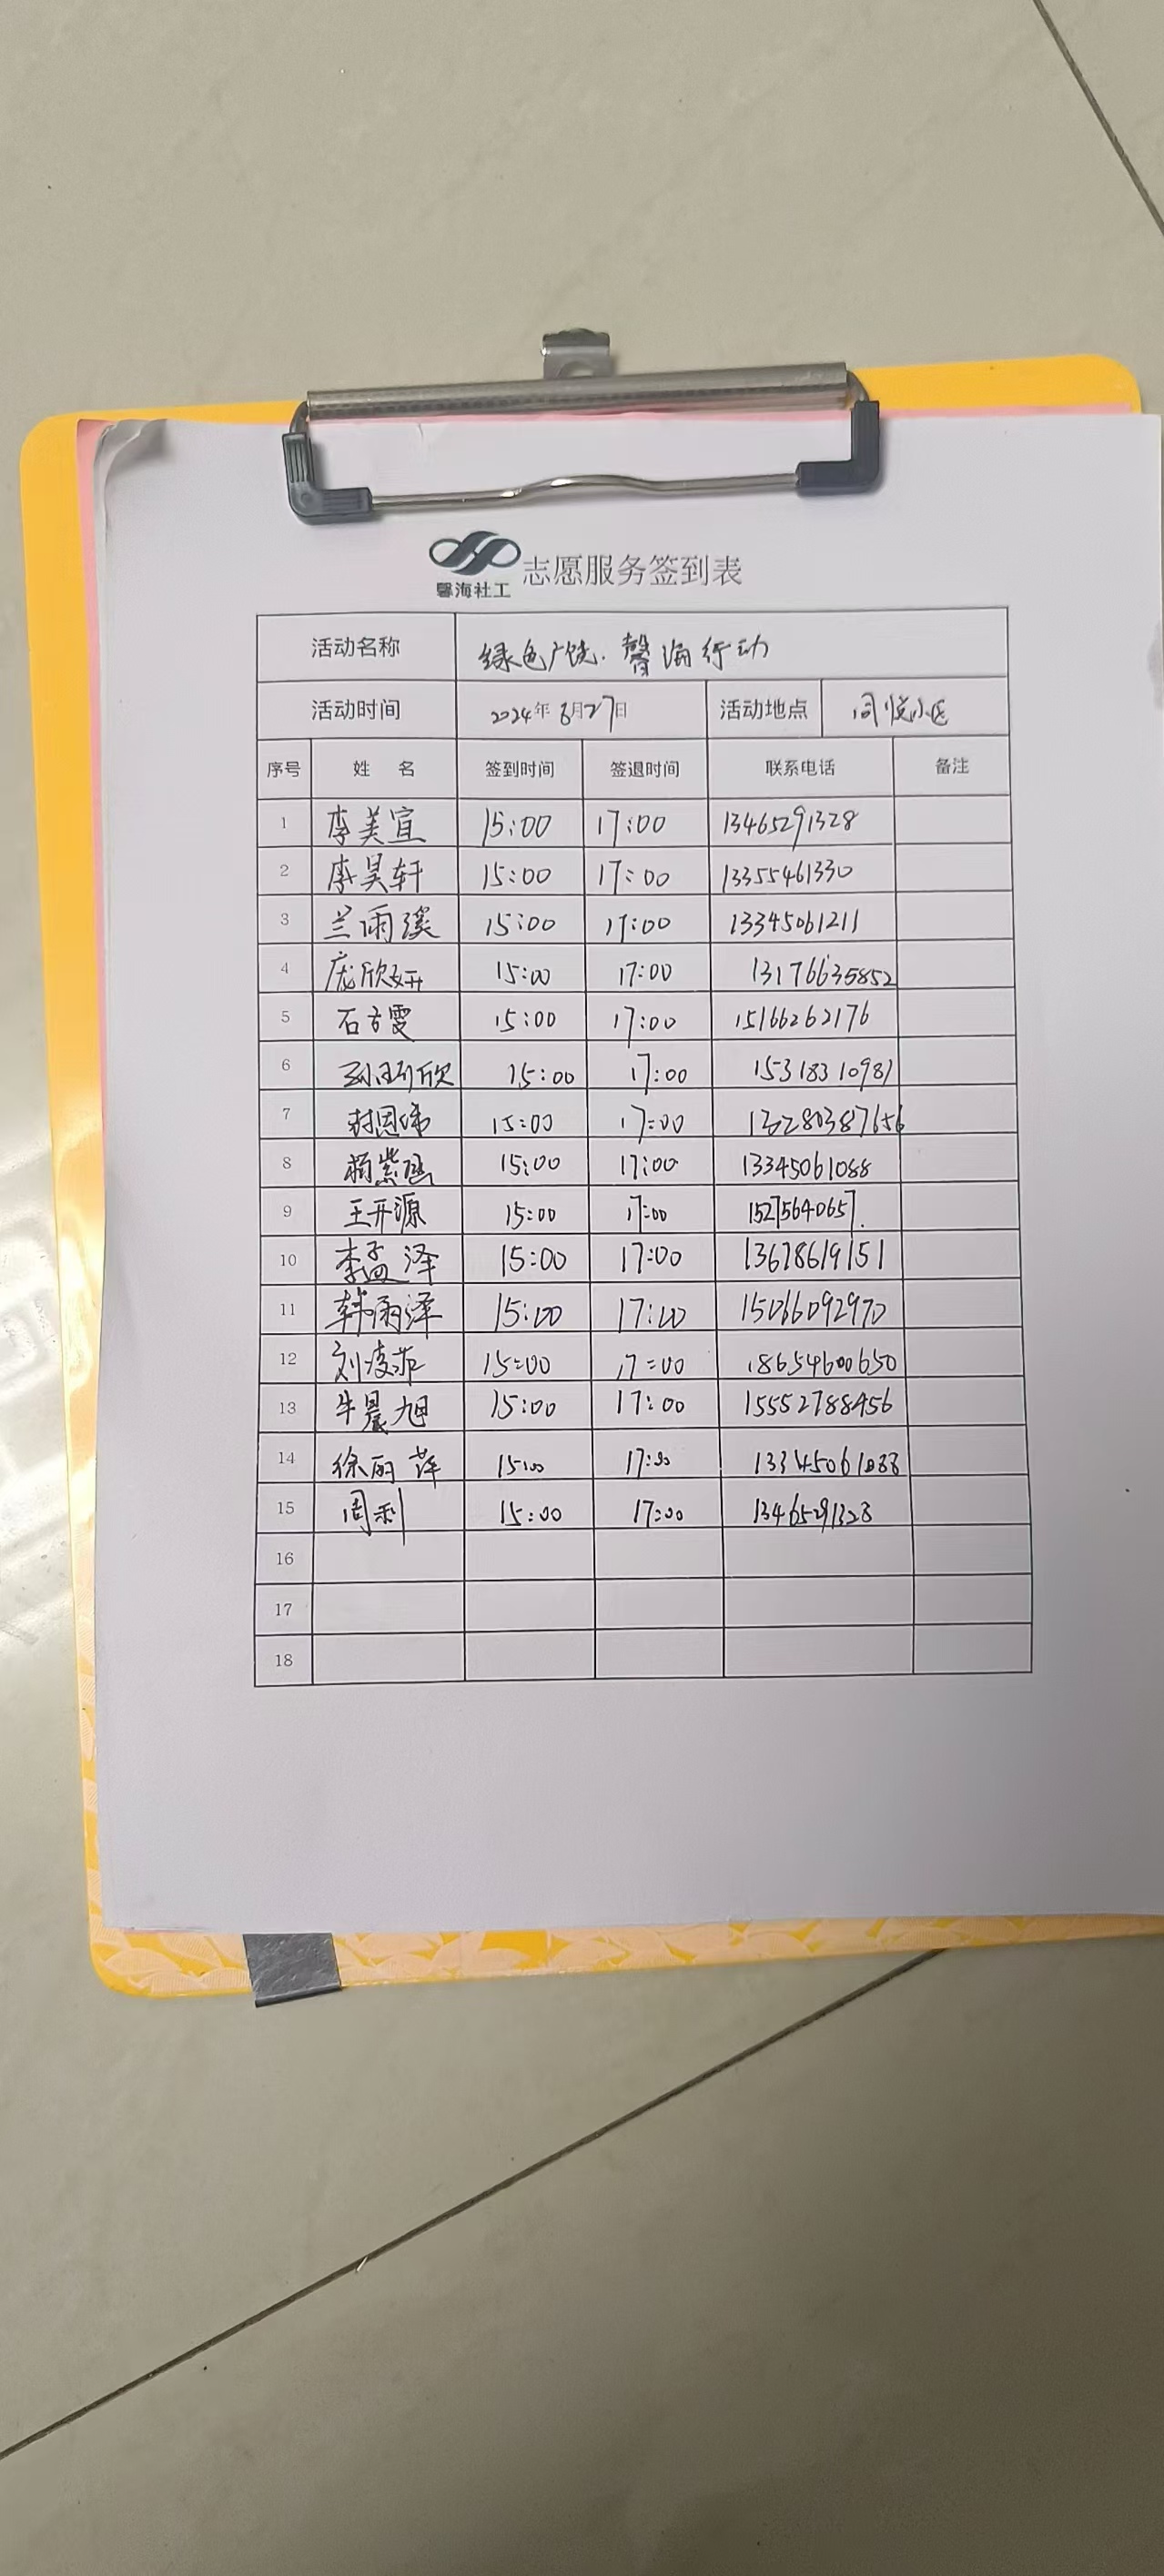 馨海社工 志愿服务签到表
活动名称 绿色广饶.馨海行动
活动时间 2024年6月27日 活动地点 同悦小区
序号 姓名 签到时间 签退时间 联系电话 备注
1 李美宣 15:00 17:00 13465291328
2 李昊轩 15:00 17:00 13355461330
3 兰雨溪 15:00 17:00 13345061211
4 庞欣妍 15:00 17:00 13176635852
5 石方雯 15:00 17:00 15166262176
6 15:00 17:00 15318310987
7 15:00 17:00
8 杨紫涵 15:00 17:00 13345061088
9 王开源 15:00 17:00 15275640657.
10 李孟泽 15:00 17:00 13678619151
11 韩雨泽 15:00 17:00 15066092970
12 15:00 17:00 18654600650
13 牛晨旭 15:00 17:00 15552788456
14 徐丽萍 15:00 17:00 13345061088
15 周利 15:00 17:00 13465291328
16
17
18